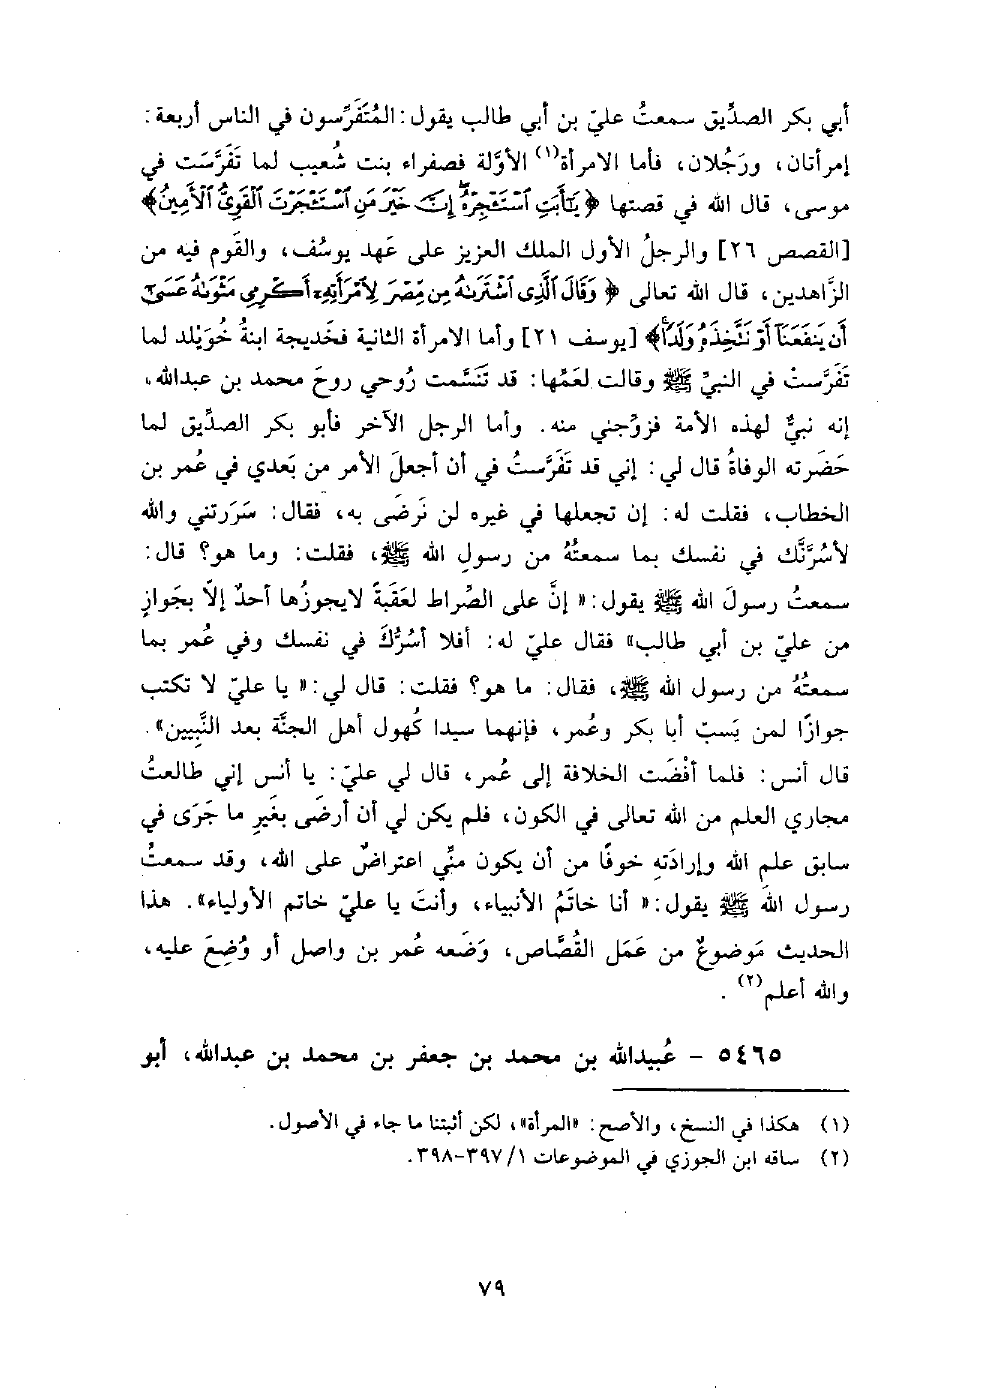 أبي بكر الصدِّيق سمعتُ عليّ بن أبي طالب يقول: المُتَفَرِّسون في الناس أربعة:
إمرأتان، ورَجُلان، فأما الامرأة(١) الأوَّلة فصفراء بنت شُعيب لما تَفَرَّسَت في
موسى، قال الله في قصتها ﴿يَٰٓأَبَتِ ٱسْتَـْٔجِرْهُ إِنَّ خَيْرَ مَنِ ٱسْتَـْٔجَرْتَ ٱلْقَوِىُّ ٱلْأَمِينُ﴾
[القصص ٢٦] والرجلُ الأول الملك العزيز على عَهد يوسُف، والقَوم فيه من
الزَّاهدين، قال الله تعالى ﴿وَقَالَ ٱلَّذِى ٱشْتَرَىٰهُ مِن مِّصْرَ لِٱمْرَأَتِهِۦٓ أَكْرِمِى مَثْوَىٰهُ عَسَىٰٓ
أَن يَنفَعَنَآ أَوْ نَتَّخِذَهُۥ وَلَدًا﴾ [يوسف ٢١] وأما الامرأة الثانية فخَديجة ابنةُ خُوَيْلد لما
تَفَرَّستْ في النبيِّ ﷺ وقالت لعَمِّها: قد تَنَسَّمت رُوحي روحَ محمد بن عبدالله،
إنه نبيٌّ لهذه الأمة فزوِّجني منه. وأما الرجل الآخر فأبو بكر الصدِّيق لما
حَضَرته الوفاةُ قال لي: إني قد تَفَرَّستُ في أن أجعلَ الأمر من بَعدي في عُمر بن
الخطاب، فقلت له: إن تجعلها في غيره لن نَرضَى به، فقال: سَرَرتني والله
لأسُرَّنَّك في نفسك بما سمعتُهُ من رسولِ الله ﷺ، فقلت: وما هو؟ قال:
سمعتُ رسولَ الله ﷺ يقول: «إنَّ على الصِّراط لعَقَبةً لايجوزُها أحدٌ إلاَّ بجَوازٍ
من عليّ بن أبي طالب» فقال عليّ له: أفلا أسُرُّكَ في نفسك وفي عُمر بما
سمعتُهُ من رسول الله ﷺ، فقال: ما هو؟ فقلت: قال لي: «يا عليّ لا تكتب
جوازًا لمن يَسبّ أبا بكر وعُمر، فإنهما سيدا كُهول أهل الجنَّة بعد النَّبِيين».
قال أنس: فلما أفْضَت الخلافة إلى عُمر، قال لي عليّ: يا أنس إني طالعتُ
مجاري العلم من الله تعالى في الكون، فلم يكن لي أن أرضَى بغَيرِ ما جَرَى في
سابق علمِ الله وإرادَتهِ خوفًا من أن يكون منِّي اعتراضٌ على الله، وقد سمعتُ
رسول الله ﷺ يقول: «أنا خاتَمُ الأنبياء، وأنتَ يا عليّ خاتم الأولياء». هذا
الحديث مَوضوعٌ من عَمَل القُصَّاص، وَضَعه عُمر بن واصل أو وُضِعَ عليه،
والله أعلم(٢).
٥٤٦٥ - عُبيدالله بن محمد بن جعفر بن محمد بن عبدالله، أبو
(١) هكذا في النسخ، والأصح: «المرأة»، لكن أثبتنا ما جاء في الأصول.
(٢) ساقه ابن الجوزي في الموضوعات ١/ ٣٩٧-٣٩٨.
٧٩